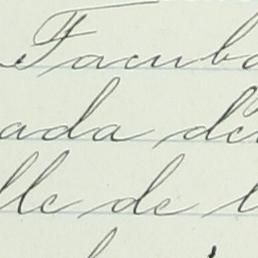 Tacuba
ada de
lle de l